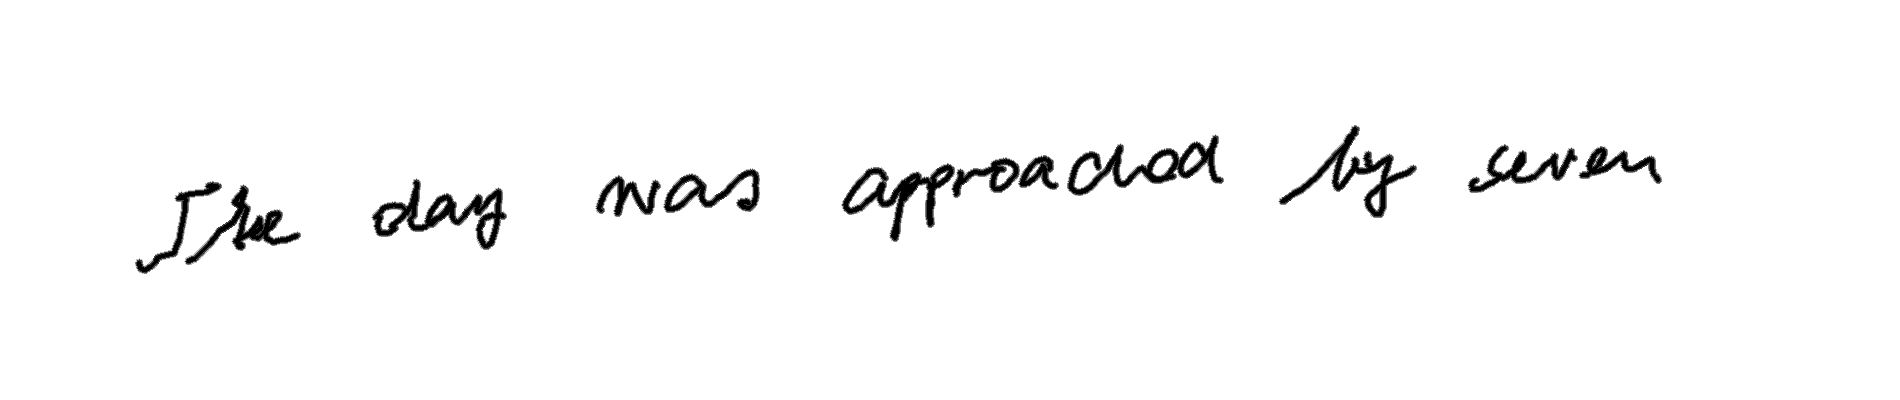 The day was approached by seven